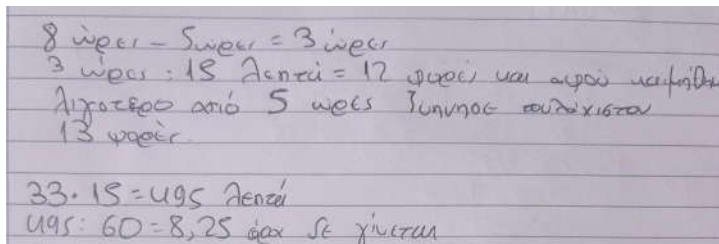 8 ώρες - 5 ώρες = 3 ώρες
3 ώρες : 15 λεπτά = 12 φορές και αφού κοιμήθηκε
λιγότερο από 5 ώρες ξύπνησε τουλάχιστον
13 φορές.
33 · 15 = 495 λεπτά
495 : 60 = 8,25 άρα δε γίνεται